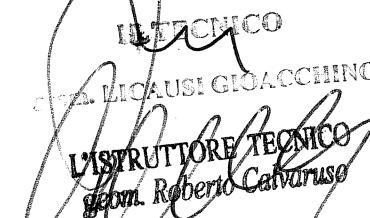 IL TECNICO
geom. LICAUSI GIOACCHINO
L'ISTRUTTORE TECNICO
geom. Roberto Calvaruso